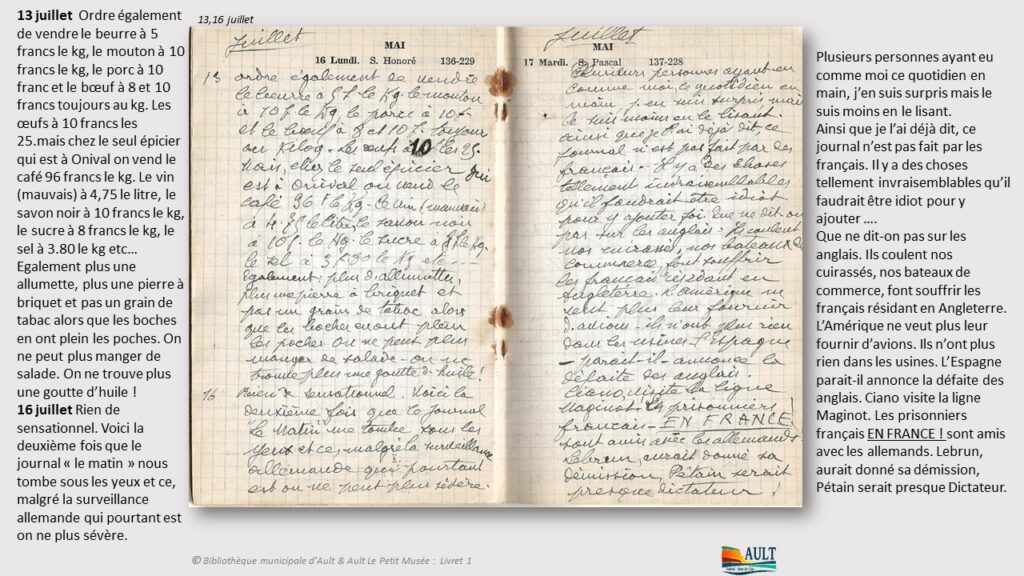 13 juillet  Ordre également
de vendre le beurre à 5
francs le kg, le mouton à 10
francs le kg, le porc à 10
franc et le bœuf à 8 et 10
francs toujours au kg. Les
œufs à 10 francs les
25.mais chez le seul épicier
qui est à Onival on vend le
café 96 francs le kg. Le vin
(mauvais) à 4,75 le litre, le
savon noir à 10 francs le kg,
le sucre à 8 francs le kg, le
sel à 3.80 le kg etc…
Egalement plus une
allumette, plus une pierre à
briquet et pas un grain de
tabac alors que les boches
en ont plein les poches. On
ne peut plus manger de
salade. On ne trouve plus
une goutte d’huile !
16 juillet Rien de
sensationnel. Voici la
deuxième fois que le
journal « le matin » nous
tombe sous les yeux et ce,
malgré la surveillance
allemande qui pourtant est
on ne plus sévère.
13,16 juillet
Juillet
MAI
16 Lundi. S. Honoré 136-229
13 ordre également de vendre
le beurre à 5f. le Kg. le mouton
à 10f. le Kg, le porc à 10f
et le boeuf à 8 et 10f. toujours
au Kilog. Les oeufs à 10 les 25.
Mais, chez le seul épicier qui
est à Onival on vend le
café 96f le Kg. Le vin (mauvais)
à 4.75 le litre, le savon noir
à 10f. le Kg. le sucre à 8f le Kg.
le sel à 3f80 le Kg etc
également plus d'allumettes,
plus une pierre à briquet et
pas un grain de tabac alors
que les boches en ont plein
les poches. On ne peut plus
manger de salade. On ne
trouve plus une goutte d'huile !
16 Rien de sensationnel. Voici la
deuxième fois que le journal
Le Matin nous tombe sous les
yeux et ce, malgré la surveillance
allemande qui pourtant
est on ne peut plus sévère.
Juillet
MAI
17 Mardi. S. Pascal 137-228
Plusieurs personnes ayant eu
comme moi, le quotidien en
main, j'en suis surpris mais
le suis moins en le lisant.
ainsi que je l'ai déjà dit ce
journal n'est pas fait par des
français. Il y a des choses
tellement invraisemblables
qu'il faudrait être idiot
pour y ajouter foi. Que ne dit-on
pas sur les anglais. Ils coulent
nos cuirassés, nos bateaux de
commerce, font souffrir
les français résidant en
Angleterre. L'amérique ne
veut plus leur fournir
d'avions. ils n'ont plus rien
dans les usines. L'Espagne
- parait-il - annonce la
défaite des anglais.
Ciano visite la ligne
Maginot. Les prisonniers
français - EN FRANCE !
sont amis avec les allemands.
Lebrun, aurait donné sa
démission, Pétain serait
presque dictateur !
Plusieurs personnes ayant eu
comme moi ce quotidien en
main, j’en suis surpris mais le
suis moins en le lisant.
Ainsi que je l’ai déjà dit, ce
journal n’est pas fait par les
français. Il y a des choses
tellement invraisemblables qu’il
faudrait être idiot pour y
ajouter ….
Que ne dit-on pas sur les
anglais. Ils coulent nos
cuirassés, nos bateaux de
commerce, font souffrir les
français résidant en Angleterre.
L’Amérique ne veut plus leur
fournir d’avions. Ils n’ont plus
rien dans les usines. L’Espagne
parait-il annonce la défaite des
anglais. Ciano visite la ligne
Maginot. Les prisonniers
français EN FRANCE ! sont amis
avec les allemands. Lebrun,
aurait donné sa démission,
Pétain serait presque Dictateur.
© Bibliothèque municipale d’Ault & Ault Le Petit Musée : Livret 1
AULT